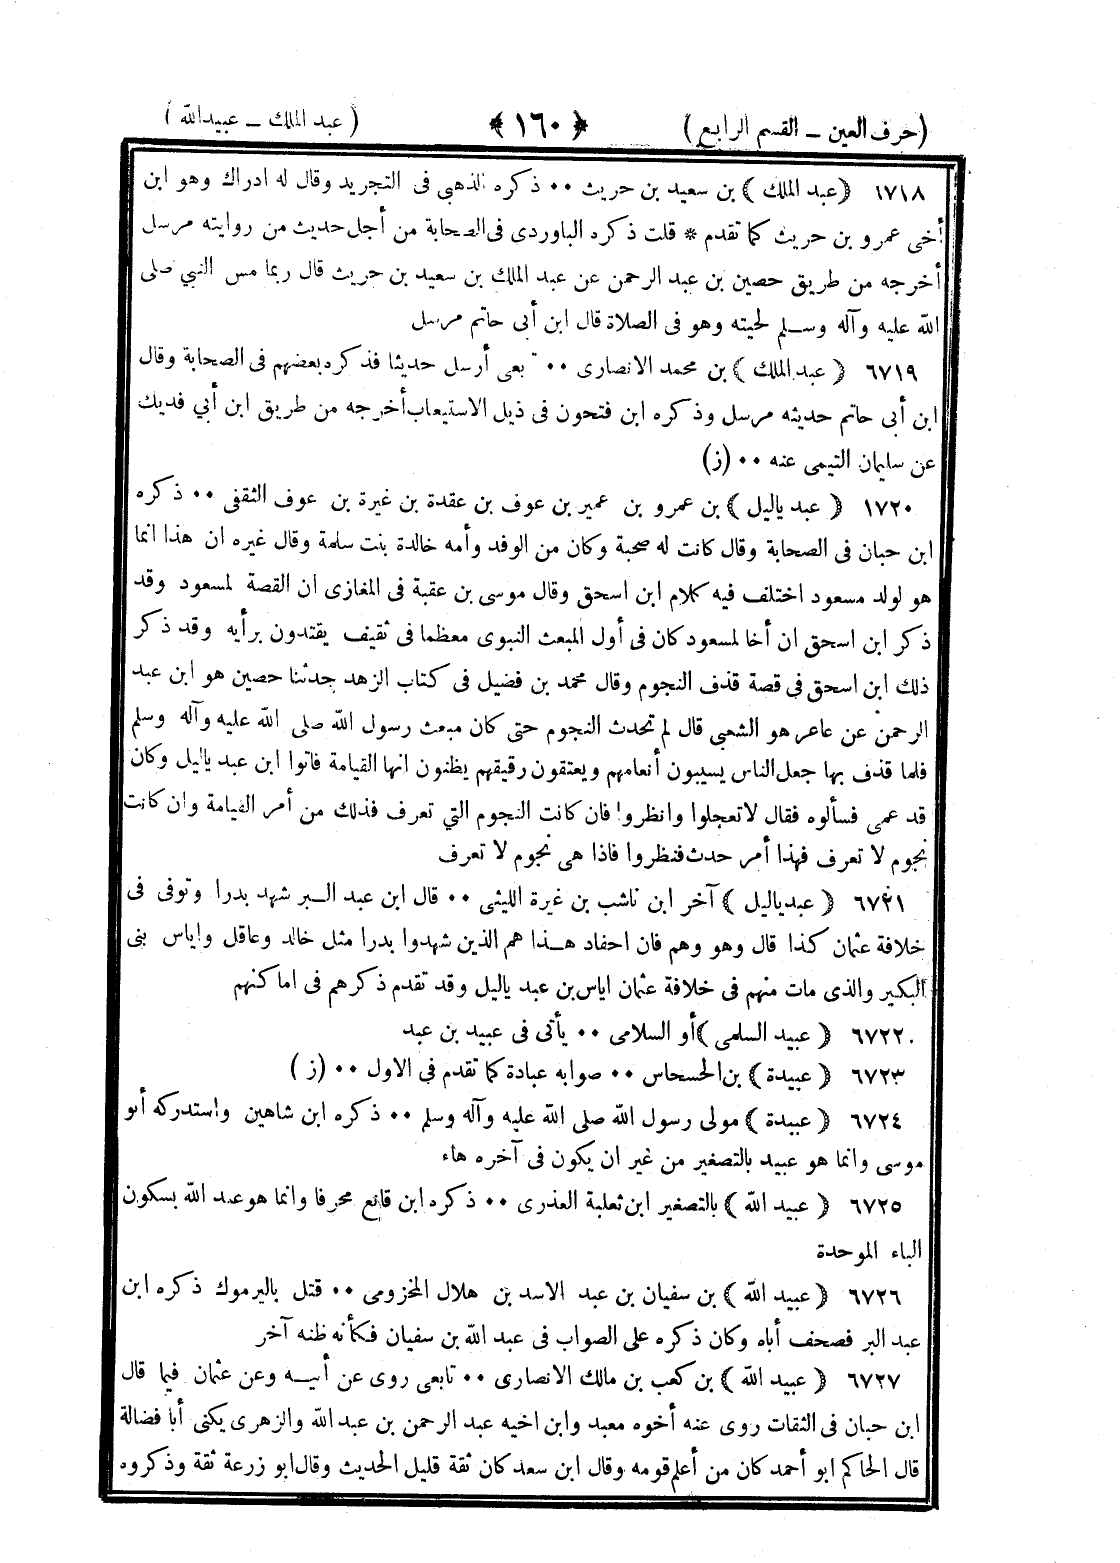 (حرف العين ــ القسم الرابع) ﴿١٦٠﴾ (عبد الملك ــ عبيدالله)
١٧١٨ ﴿عبد الملك﴾ بن سعيد بن حريث ٠٠ ذكره الذهبى فى التجريد وقال له ادراك وهو ابن
أخى عمرو بن حريث كما تقدم * قلت ذكره الباوردى فى الصحابة من أجل حديث من روايته مرسل
أخرجه من طريق حصين بن عبد الرحمن عن عبد الملك بن سعيد بن حريث قال ربما مس النبي صلى
الله عليه وآله وسلم لحيته وهو فى الصلاة قال ابن أبى حاتم مرسل
٦٧١٩ ﴿عبد الملك﴾ بن محمد الانصارى ٠٠ تابعى أرسل حديثا فذكره بعضهم فى الصحابة وقال
ابن أبى حاتم حديثه مرسل وذكره ابن فتحون فى ذيل الاستيعاب أخرجه من طريق ابن أبي فديك
عن سليمان التيمى عنه ٠٠ (ز)
١٧٢٠ ﴿عبد ياليل﴾ بن عمرو بن عمير بن عوف بن عقدة بن غيرة بن عوف الثقفى ٠٠ ذكره
ابن حبان فى الصحابة وقال كانت له صحبة وكان من الوفد وأمه خالدة بنت سلمة وقال غيره ان هذا انما
هو لولد مسعود اختلف فيه كلام ابن اسحق وقال موسى بن عقبة فى المغازى ان القصة لمسعود وقد
ذكر ابن اسحق ان أخا لمسعود كان فى أول المبعث النبوى معظما فى ثقيف يقتدون برأيه وقد ذكر
ذلك ابن اسحق فى قصة قذف النجوم وقال محمد بن فضيل فى كتاب الزهد حدثنا حصين هو ابن عبد
الرحمن عن عامر هو الشعبى قال لم تحدث النجوم حتى كان مبعث رسول الله صلى الله عليه وآله وسلم
فلما قذف بها جعل الناس يسيبون أنعامهم ويعتقون رقيقهم يظنون انها القيامة فاتوا ابن عبد ياليل وكان
قد عمى فسألوه فقال لاتعجلوا وانظروا فان كانت النجوم التي تعرف فذلك من أمر القيامة وان كانت
نجوم لا تعرف فهذا أمر حدث فنظروا فاذا هى نجوم لا تعرف
٦٧٢١ ﴿عبد ياليل﴾ آخر ابن ناشب بن غيرة الليثى ٠٠ قال ابن عبد البر شهد بدرا وتوفى فى
خلافة عثمان كذا قال وهو وهم فان احفاد هذا هم الذين شهدوا بدرا مثل خالد وعاقل واياس بنى
البكير والذى مات منهم فى خلافة عثمان اياس بن عبد ياليل وقد تقدم ذكرهم فى اماكنهم
٦٧٢٢ ﴿عبيد السلمى﴾ أو السلامى ٠٠ يأتى فى عبيد بن عبد
٦٧٢٣ ﴿عبيدة﴾ بن الحسحاس ٠٠ صوابه عبادة كما تقدم فى الاول ٠٠ (ز)
٦٧٢٤ ﴿عبيدة﴾ مولى رسول الله صلى الله عليه وآله وسلم ٠٠ ذكره ابن شاهين واستدركه أبو
موسى وانما هو عبيد بالتصغير من غير ان يكون فى آخره هاء
٦٧٢٥ ﴿عبيد الله﴾ بالتصغير ابن ثعلبة العذرى ٠٠ ذكره ابن قانع محرفا وانما هو عبد الله بسكون
الباء الموحدة
٦٧٢٦ ﴿عبيد الله﴾ بن سفيان بن عبد الاسد بن هلال المخزومى ٠٠ قتل باليرموك ذكره ابن
عبد البر فصحف أباه وكان ذكره على الصواب فى عبد الله بن سفيان فكأنه ظنه آخر
٦٧٢٧ ﴿عبيد الله﴾ بن كعب بن مالك الانصارى ٠٠ تابعى روى عن أبيه وعن عثمان فيما قال
ابن حبان فى الثقات روى عنه أخوه معبد وابن اخيه عبد الرحمن بن عبد الله والزهرى يكنى أبا فضالة
قال الحاكم ابو أحمد كان من أعلم قومه وقال ابن سعد كان ثقة قليل الحديث وقال ابو زرعة ثقة وذكروه